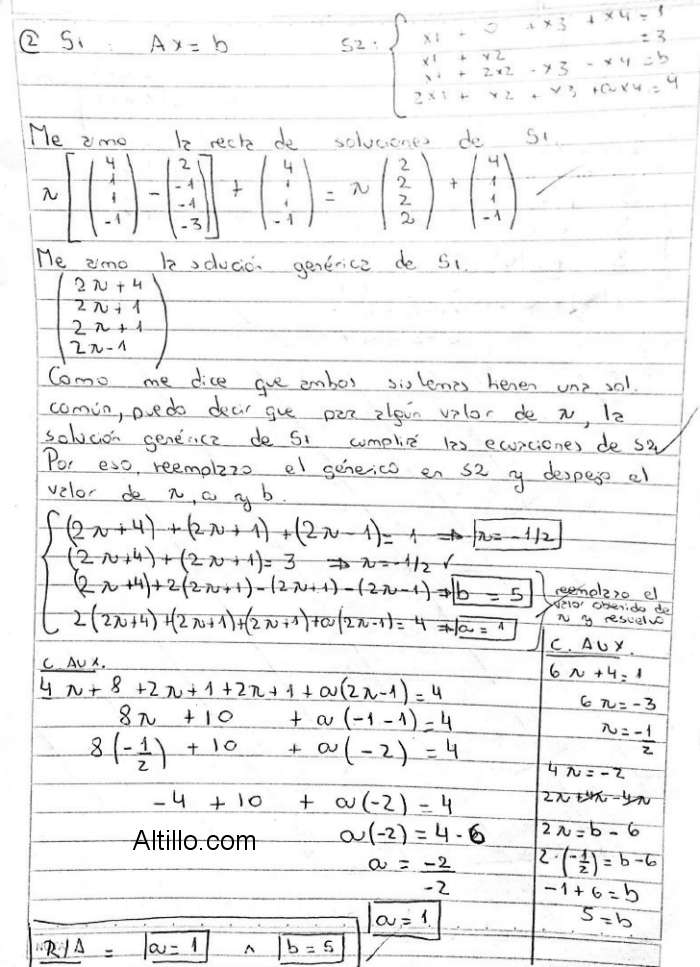 ② S1 : Ax = b    S2: { x1 + 0 + x3 + x4 = 1
x1 + x2 = 3
x1 + 2x2 - x3 - x4 = b
2x1 + x2 + x3 + ax4 = 4
Me armo la recta de soluciones de S1.
λ [ (4 1 1 -1) - (2 -1 -1 -3) ] + (4 1 1 -1) = λ (2 2 2 2) + (4 1 1 -1)
Me armo la solución genérica de S1.
(2λ+4
2λ+1
2λ+1
2λ-1)
Como me dice que ambos sistemas tienen una sol.
común, puedo decir que para algún valor de λ, la
solución genérica de S1 cumplirá las ecuaciones de S2
Por eso, reemplazo el génerico en S2 y despejo el
valor de λ, a y b.
(2λ+4) + (2λ+1) + (2λ-1) = 1 ⇒ λ = -1/2
(2λ+4) + (2λ+1) = 3 ⇒ λ = -1/2 ✓
(2λ+4) + 2(2λ+1) - (2λ+1) - (2λ-1) ⇒ b = 5
2(2λ+4) + (2λ+1) + (2λ+1) + a(2λ-1) = 4 ⇒ a = 1
reemplazo el
valor obtenido de
λ y resuelvo
C. AUX.
4λ + 8 + 2λ + 1 + 2λ + 1 + a(2λ-1) = 4
8λ + 10 + a(-1-1) = 4
8(-1/2) + 10 + a(-2) = 4
-4 + 10 + a(-2) = 4
a(-2) = 4 - 6
a = -2/-2
a = 1
C. AUX.
6λ + 4 = 1
6λ = -3
λ = -1/2
4λ = -2
2λ + 4λ - 4λ
2λ = b - 6
2·(-1/2) = b - 6
-1 + 6 = b
5 = b
Altillo.com
R/A = a = 1 ∧ b = 5